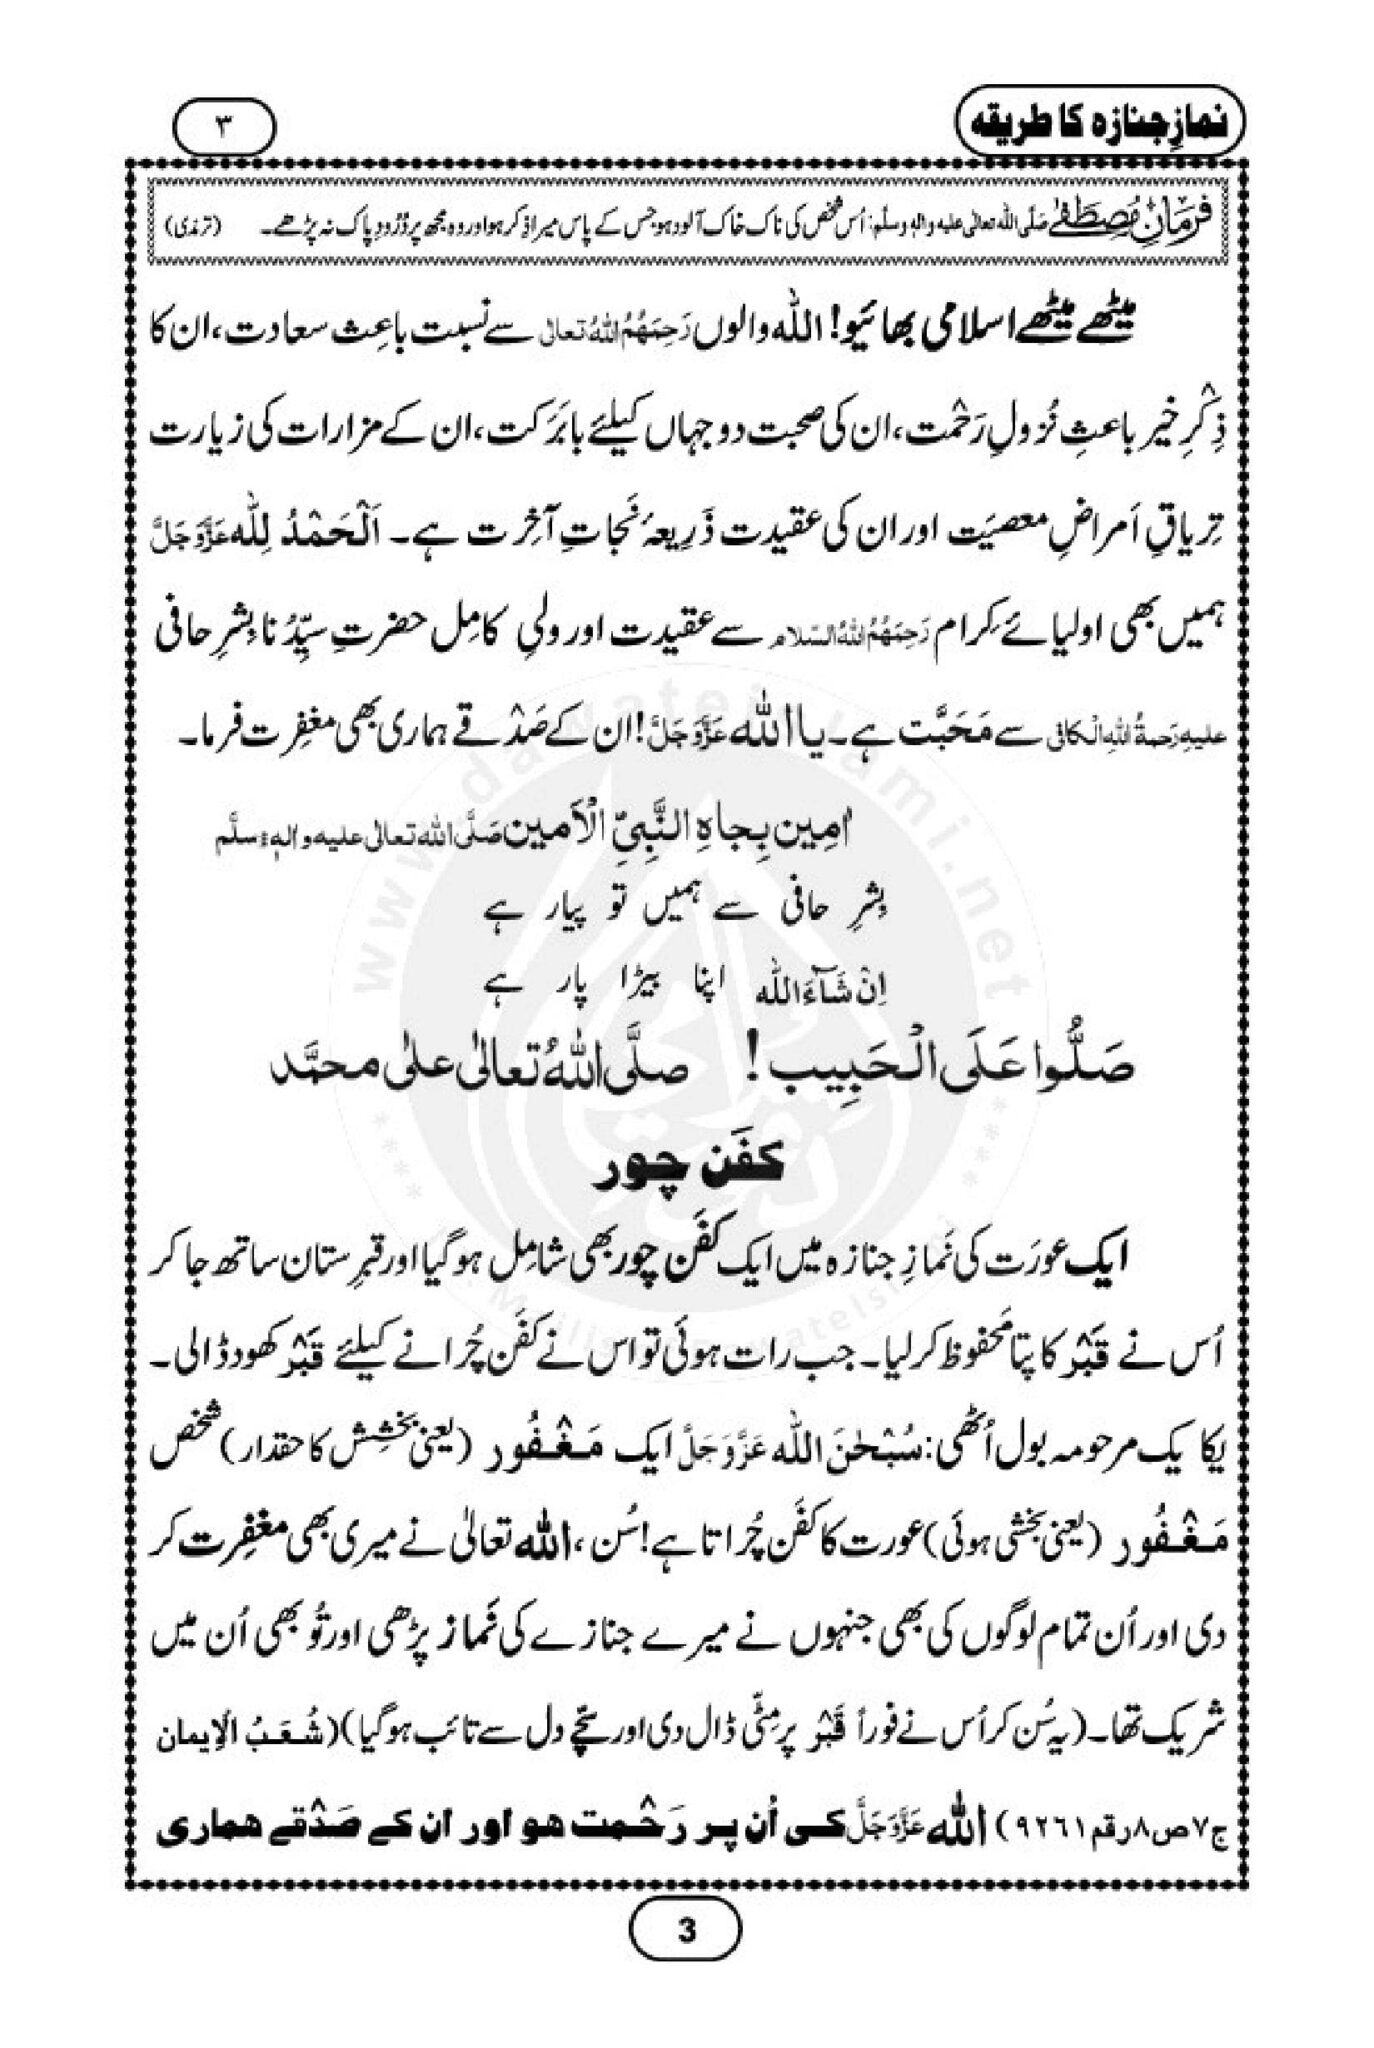 نمازِ جنازہ کا طریقہ
۳
فرمانِ مصطفٰے صَلَّی اللہ تعالٰی علیہ واٰلہٖ وسلَّم: اُس شخص کی ناک خاک آلود ہو جس کے پاس میرا ذِکر ہو اور وہ مجھ پر دُرُودِ پاک نہ پڑھے۔ (ترمذی)
میٹھے میٹھے اسلامی بھائیو! اللہ والوں رَحِمَہُمُ اللہُ تعالٰی سے نسبت باعِثِ سعادت، ان کا
ذِکْرِ خیر باعثِ نُزُولِ رَحْمت، ان کی صحبت دو جہاں کیلئے بابَرَکت، ان کے مزارات کی زیارت
تِریاقِ اَمراضِ معصِیَت اور ان کی عقیدت ذَرِیعۂ نَجاتِ آخِرت ہے۔ اَلْحَمْدُ لِلّٰہ عَزَّوَجَلَّ
ہمیں بھی اولیائے کِرام رَحِمَہُمُ اللہُ السّلام سے عقیدت اور ولیِ کامِل حضرتِ سیِّدُنا بِشرِ حافی
علیہِ رَحمۃُ اللہِ الْکافی سے مَحَبَّت ہے۔ یا اللہ عَزَّوَجَلَّ! ان کے صَدْقے ہماری بھی مغفِرت فرما۔
اٰمِین بِجاہِ النَّبِیِّ الْاَمین صَلَّی اللہ تعالٰی علیہ واٰلہٖ وسلَّم
بِشرِ حافی سے ہمیں تو پیار ہے
اِنْ شَآءَ اللہ اپنا بیڑا پار ہے
صَلُّوا عَلَی الْحَبِیب! صلَّی اللہُ تعالٰی علٰی محمَّد
کفَن چور
ایک عورَت کی نَمازِ جنازہ میں ایک کفَن چور بھی شامِل ہوگیا اور قبرِستان ساتھ جا کر
اُس نے قَبْر کا پتا محفوظ کرلیا۔ جب رات ہوئی تو اس نے کفَن چُرانے کیلئے قَبْر کھود ڈالی۔
یکا یک مرحومہ بول اُٹھی: سُبْحٰنَ اللہ عَزَّوَجَلَّ ایک مَغْفُور (یعنی بخشِش کا حقدار) شخص
مَغْفُور (یعنی بخشی ہوئی) عورت کا کفَن چُراتا ہے! سُن، اللہ تعالٰی نے میری بھی مغفِرت کر
دی اور اُن تمام لوگوں کی بھی جنہوں نے میرے جنازے کی نَماز پڑھی اور تُو بھی اُن میں
شریک تھا۔ (یہ سُن کر اُس نے فوراً قَبْر پر مِٹّی ڈال دی اور سچّے دل سے تائب ہوگیا) (شُعَبُ الْاِیمان
ج۷ ص۸ رقم ۹۲۶۱) اللہ عَزَّوَجَلَّ کی اُن پر رَحْمت ہو اور ان کے صَدْقے ہماری
3
www.dawateislami.net